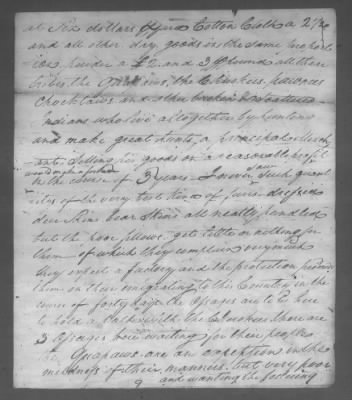 at Six dollars, Cotton Cloth a 2
and all other dry goods in the same propor-
tion, Powder a £2 and 3 pound all these
tribes the Osages, the Cherokees, pawnees
Chocktaws and other broken & scattered
indians who live altogether by hunting
and make great hunts, a principal Merch-
ant Selling his goods on a reasonable profit
would make a fortune
in the course of 3 years I never saw such quant
ities of the very best kind of furs dressed
deer Skins bear Skins all neatly handled
but the poor fellows get little or nothing for
them of which they complain very much
they expect a factory and the protection promised
them on their emigrating to this Country in the
course of forty days the Osages are to be here
to hold a talk with the Cherokees there are
3 Osages here waiting for their people
the Quapaws are an exception in the
meekness of their manners, but very poor
9 and wanting the fostering